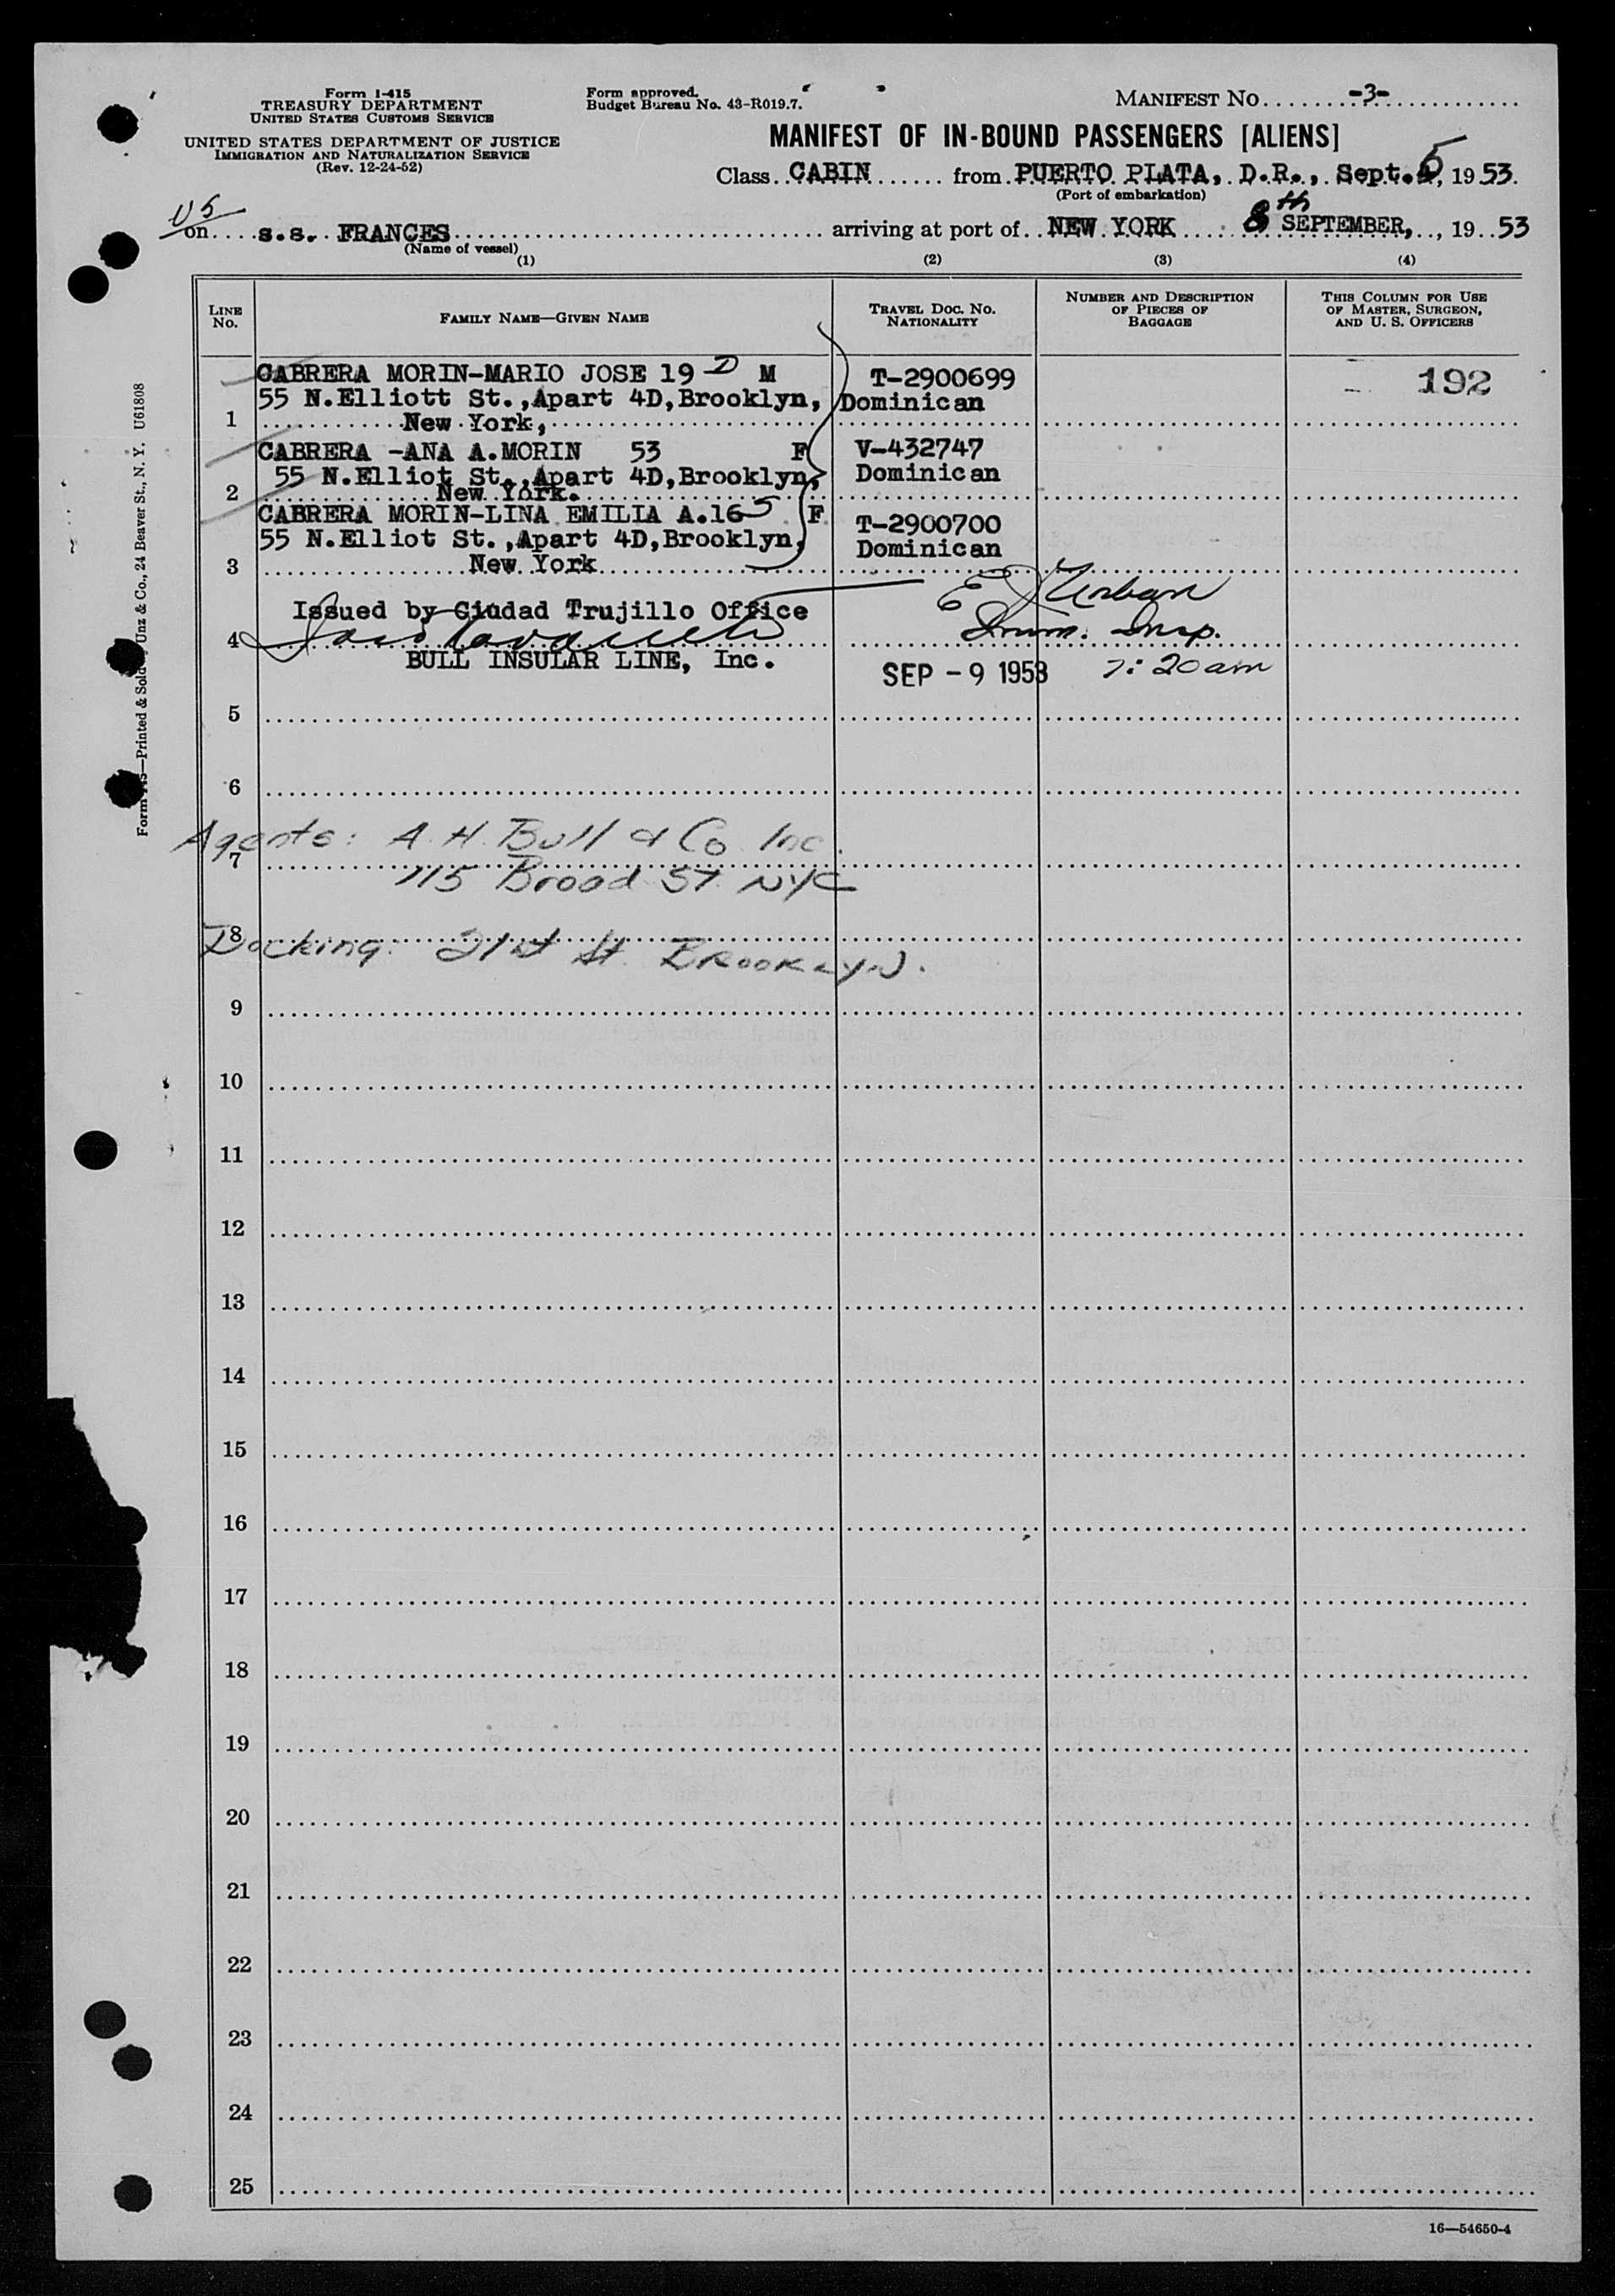 Form I-415
TREASURY DEPARTMENT
UNITED STATES CUSTOMS SERVICE
UNITED STATES DEPARTMENT OF JUSTICE
IMMIGRATION AND NATURALIZATION SERVICE
(Rev. 12-24-52)
Form approved.
Budget Bureau No. 43-R019.7.
MANIFEST NO. -3-
MANIFEST OF IN-BOUND PASSENGERS [ALIENS]
Class CABIN from PUERTO PLATA, D.R., Sept. 5, 1953.
(Port of embarkation)
US
on s.s. FRANCES arriving at port of NEW YORK 8th SEPTEMBER, 1953
(Name of vessel)
(1) (2) (3) (4)
LINE NO. FAMILY NAME—GIVEN NAME TRAVEL DOC. NO. NATIONALITY NUMBER AND DESCRIPTION OF PIECES OF BAGGAGE THIS COLUMN FOR USE OF MASTER, SURGEON, AND U. S. OFFICERS
CABRERA MORIN-MARIO JOSE 19 M T-2900699 192
55 N.Elliott St.,Apart 4D,Brooklyn, Dominican
1 New York,
CABRERA -ANA A.MORIN 53 F V-432747
55 N.Elliot St.,Apart 4D,Brooklyn, Dominican
2 New York.
CABRERA MORIN-LINA EMILIA A.16 S F T-2900700
55 N.Elliot St.,Apart 4D,Brooklyn, Dominican
3 New York
Issued by Ciudad Trujillo Office E J Urban
4 Imm. Insp.
BULL INSULAR LINE, Inc. SEP - 9 1953 7:20 am
5
6
Agents: A. H. Bull & Co Inc.
7
115 Broad St NYC
8
Docking: 21st St. BROOKLYN.
9
10
11
12
13
14
15
16
17
18
19
20
21
22
23
24
25
16—54650-4
Printed & Sold Unz & Co., 24 Beaver St., N. Y. U61808